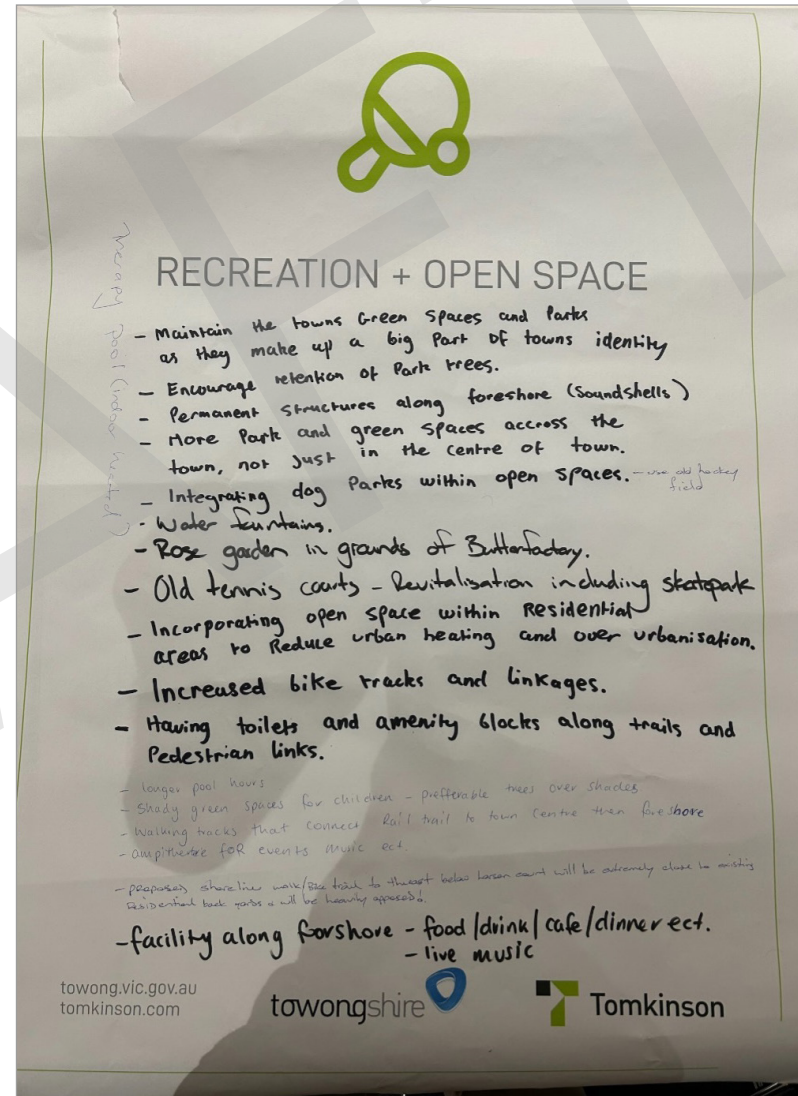 RECREATION + OPEN SPACE
Therapy Pool (indoor heated)
- Maintain the towns Green Spaces and Parks
as they make up a big Part of towns identity
- Encourage retention of Park trees.
- Permanent structures along foreshore (Soundshells)
- More Park and green spaces accross the
town, not Just in the centre of town.
- Integrating dog Parks within open spaces. - use old hockey
field
- Water fountains.
- Rose garden in grounds of Butterfactory.
- Old tennis courts - Revitalisation including skatepark
- Incorporating open space within Residential
areas to Reduce urban heating and over urbanisation.
- Increased bike tracks and linkages.
- Having toilets and amenity blocks along trails and
Pedestrian links.
- longer pool hours
- Shady green spaces for children - prefferable trees over shades
- Walking tracks that connect Rail trail to town Centre then foreshore
- ampitheatre foR events music ect.
- proposed shoreline walk/Bike track to the east below court will be extremely close to existing
Residential back yards & will be heavily apposed!
- facility along forshore - food/drink/cafe/dinner ect.
- live music
towong.vic.gov.au
tomkinson.com
towongshire
Tomkinson